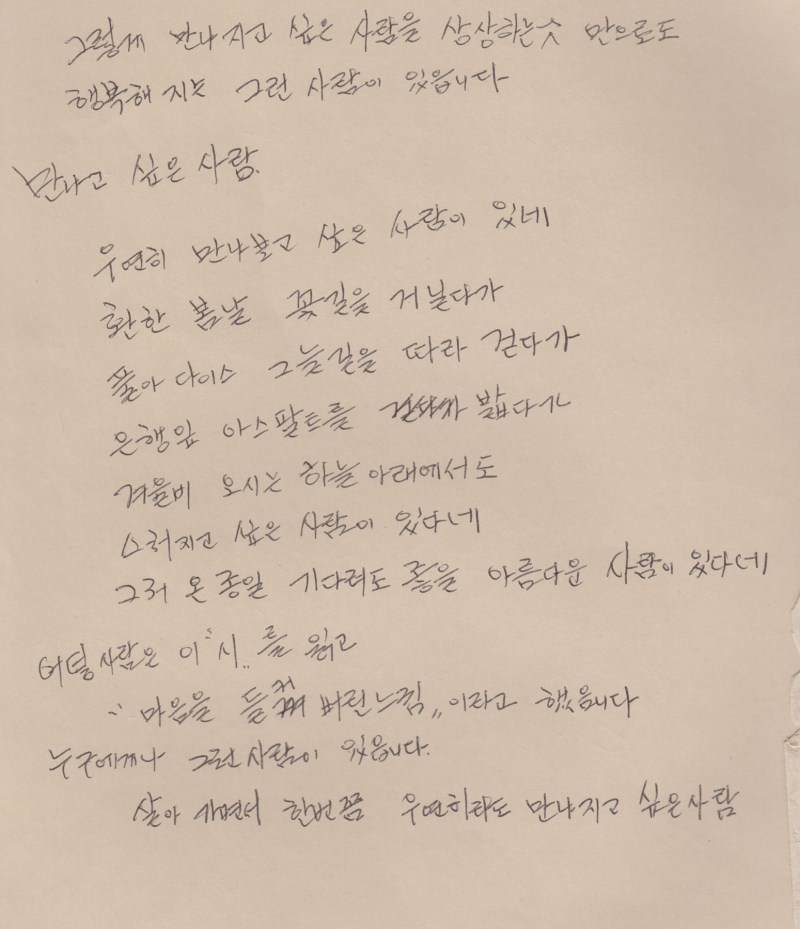 그렇게 만나지고 싶은 사람을 상상하는것 만으로도
행복해 지는 그런 사람이 있읍니다
만나고 싶은 사람.
우연히 만나보고 싶은 사람이 있네
환한 봄날 꽃길을 거닐다가
플아다이스 그늘길을 따라 걷다가
은행잎 아스팔트를 밟다가
겨울비 오시는 하늘아래에서도
스쳐지고 싶은 사람이 있다네
그저 온종일 기다려도 좋을 아름다운 사람이 있다네
어떤사람은 이 "시" 를 읽고
"마음을 들켜 버린느낌" 이라고 했읍니다
누구에게나 그런사람이 있읍니다.
살아 가면서 한번쯤 우연히라도 만나지고 싶은사람